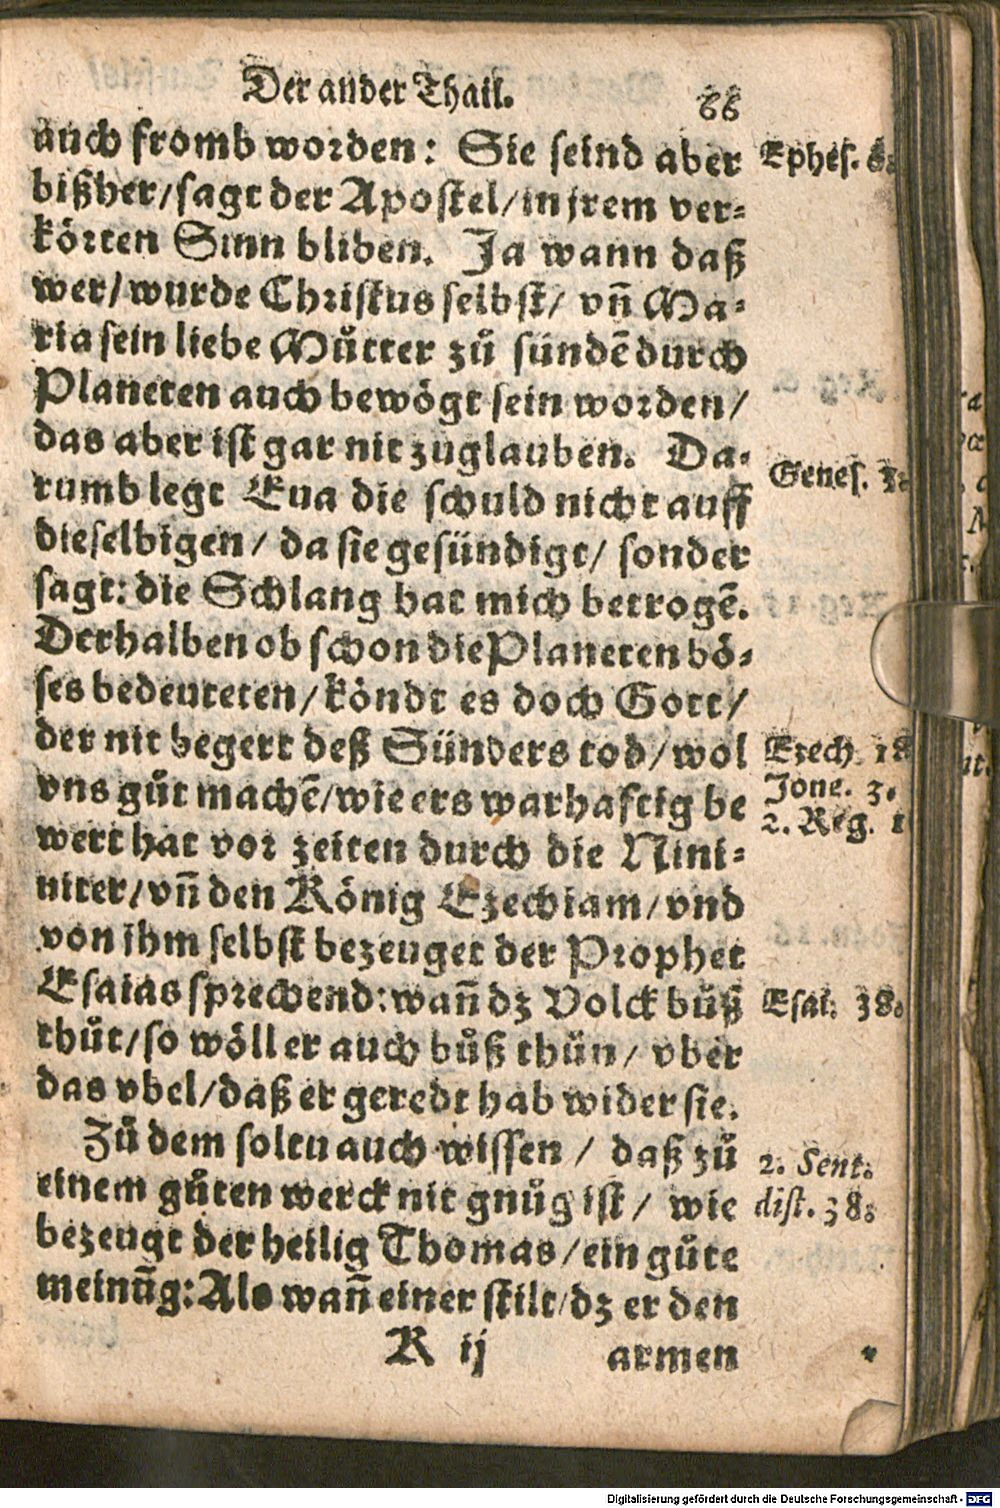 Der ander Thail. 66
auch fromb worden: Sie seind aber
Ephes.
bißher/sagt der Apostel/in jrem ver-
körten Sinn bliben. Ja wann daß
wer/wurde Christus selbst/ vñ Ma-
ria sein liebe Můtter zů sündẽ durch
Planeten auch bewögt sein worden/
das aber ist gar nit zuglauben. Da-
Genes. 3.
rumb legt Eua die schuld nicht auff
dieselbigen/ da sie gesündigt/ sonder
sagt: die Schlang hat mich betrogẽ.
Derhalben ob schon die Planeten bö-
ses bedeuteten/köndt es doch Gott/
der nit begert deß Sünders tod/wol
Ezech. 18
vns gůt machẽ/wie ers warhafftig be
Jone. 3.
2. Reg.
wert hat vor zeiten durch die Nini-
niter/vñ den König Ezechiam/vnd
von ihm selbst bezeuget der Prophet
Esaias sprechend:wañ dz Volck bůß
Esai. 38.
thůt/so wöll er auch bůß thün/ vber
das vbel/daß er geredt hab wider sie.
Zů dem soltu auch wissen / daß zů
2. Sent.
einem gůten werck nit gnůg ist/ wie
dist. 38.
bezeugt der heilig Thomas/ein gůte
meinũg:Als wañ einer stilt/dz er den
K ij
armen
Digitalisierung gefördert durch die Deutsche Forschungsgemeinschaft - DFG